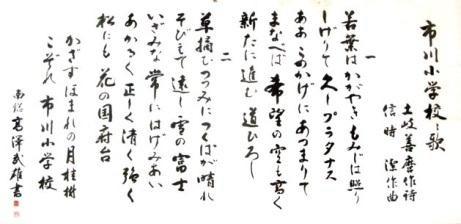 市川小学校々歌
土岐善麿作詩
信時 潔作曲
一
若葉はかがやきもみじは照り
しげりて久しプラタナス
ああこのかげにあつまりて
まなべば希望の空も高く
新たに進む道ひろし
二
草摘むつつみにつくばが晴れ
そびえて遠し雪の富士
いざみな常にはげみあい
あかるく正しく清く強く
松にも花の国府台
かざすほまれの月桂樹
こぞれ市川小学校
高澤武雄書